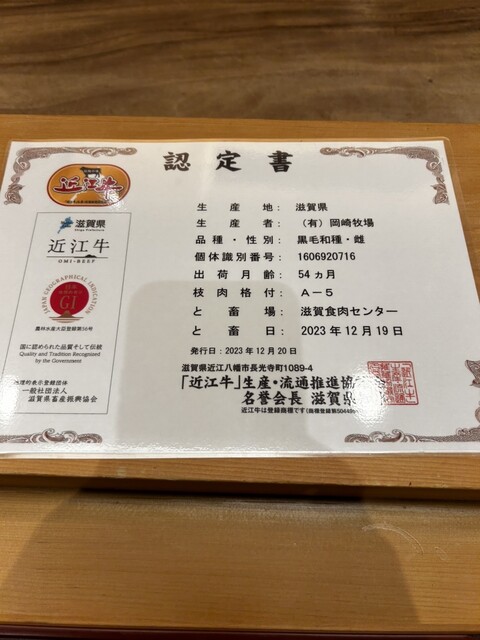 認定書
近江牛
生産地： 滋賀県
生産者： （有）岡崎牧場
品種・性別： 黒毛和種・雌
個体識別番号： 1606920716
出荷月齢： 54ヵ月
枝肉格付： A－5
と畜場： 滋賀食肉センター
と畜日： 2023年12月19日
発行日：2023年12月20日
滋賀県近江八幡市長光寺町1089-4
「近江牛」生産・流通推進協
名誉会長 滋賀県
近江牛は登録商標です
滋賀県
Shiga Prefecture
近江牛
OMI-BEEF
JAPAN GEOGRAPHICAL INDICATION
GI
農林水産大臣登録第56号
国に認められた品質そして伝統
Quality and Tradition Recognized
by the Government
地理的表示登録団体
一般社団法人
滋賀県畜産振興協会